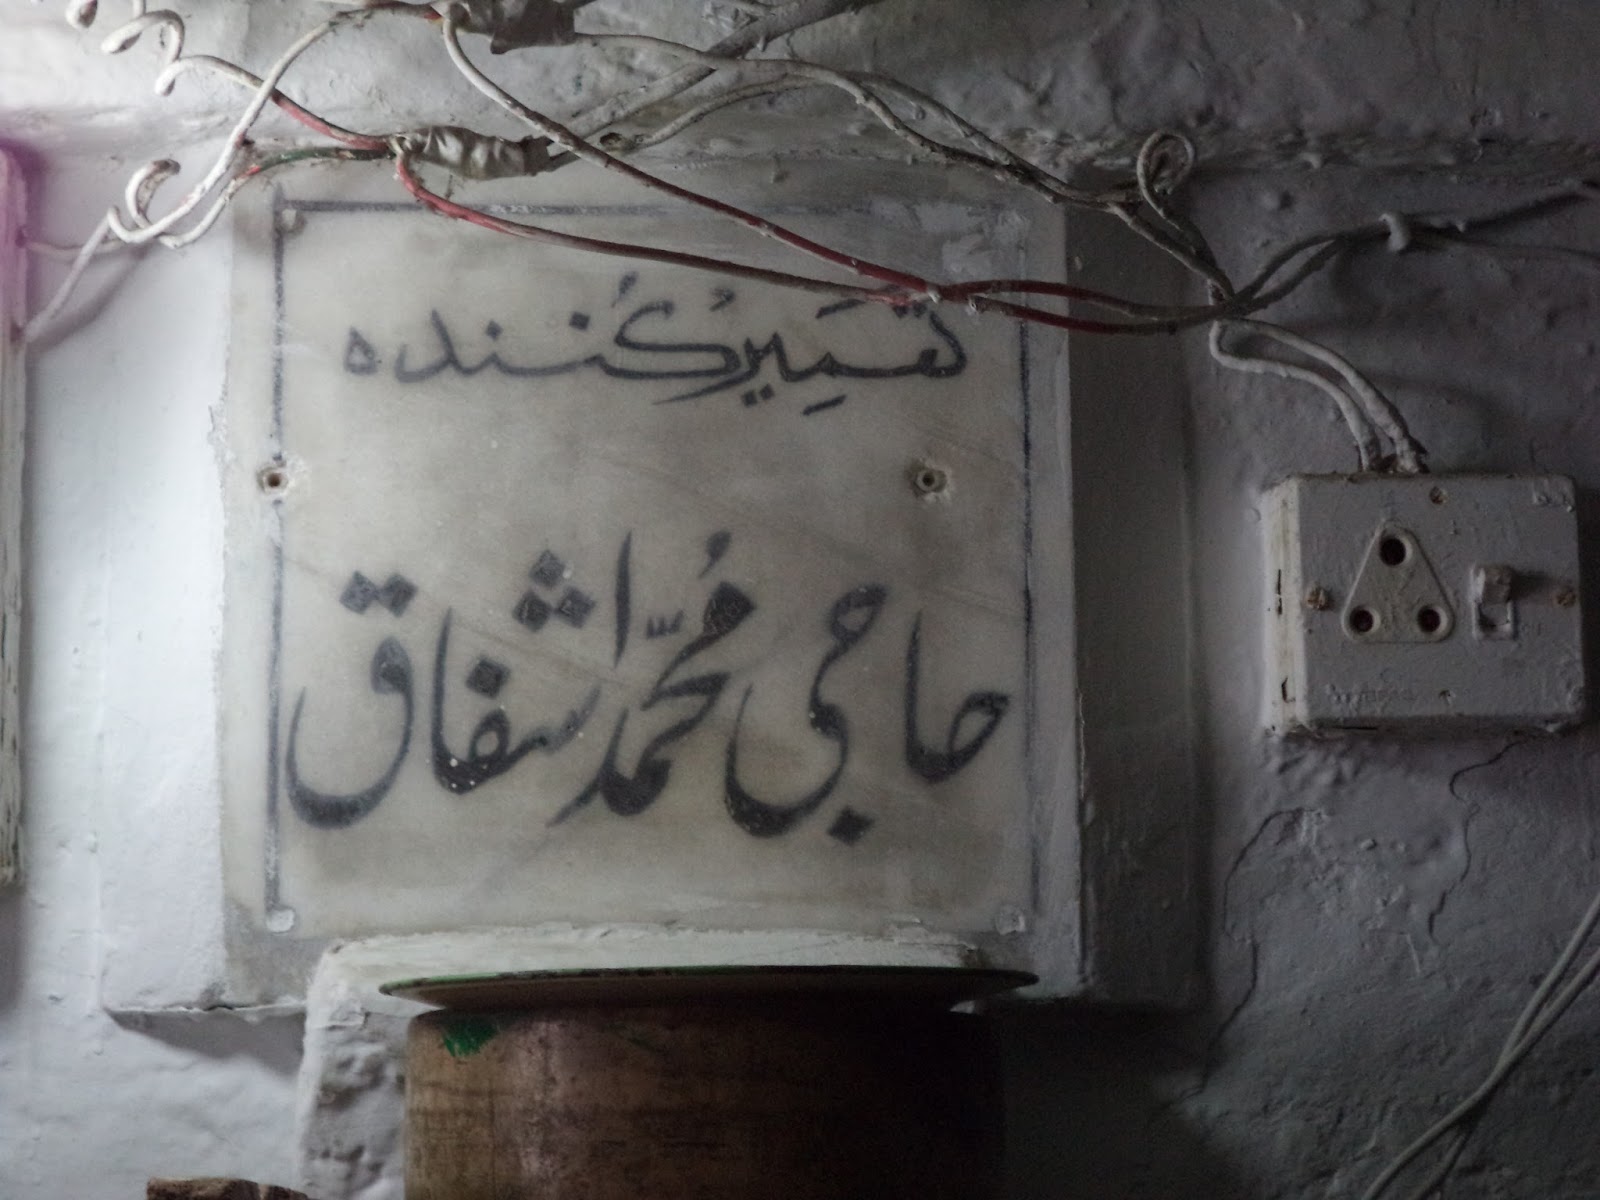 تعمیر کُنندہ
حاجی محمّد اشفاق